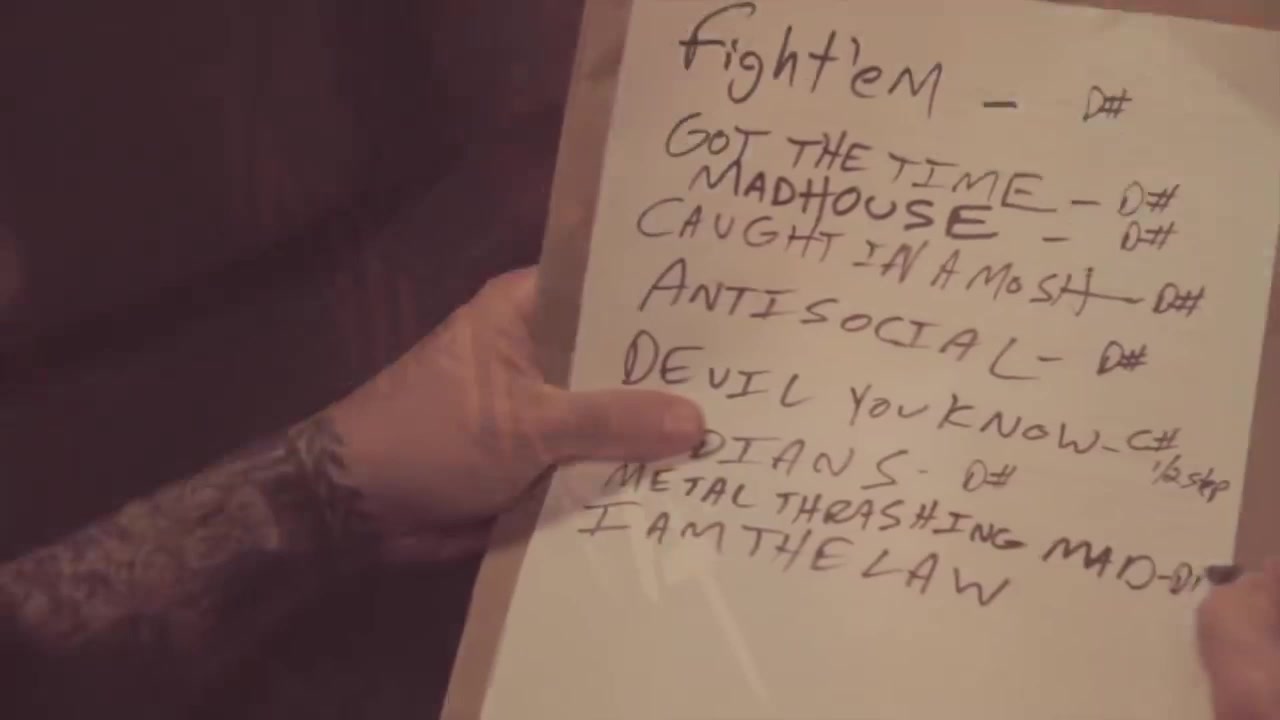 fight'em - D#
GOT THE TIME - D#
MADHOUSE - D#
CAUGHT IN A MOSH - D#
ANTISOCIAL - D#
DEVIL YOU KNOW - C#
1/2 step
DIANS - D#
METAL THRASHING MAD - D
I AM THE LAW